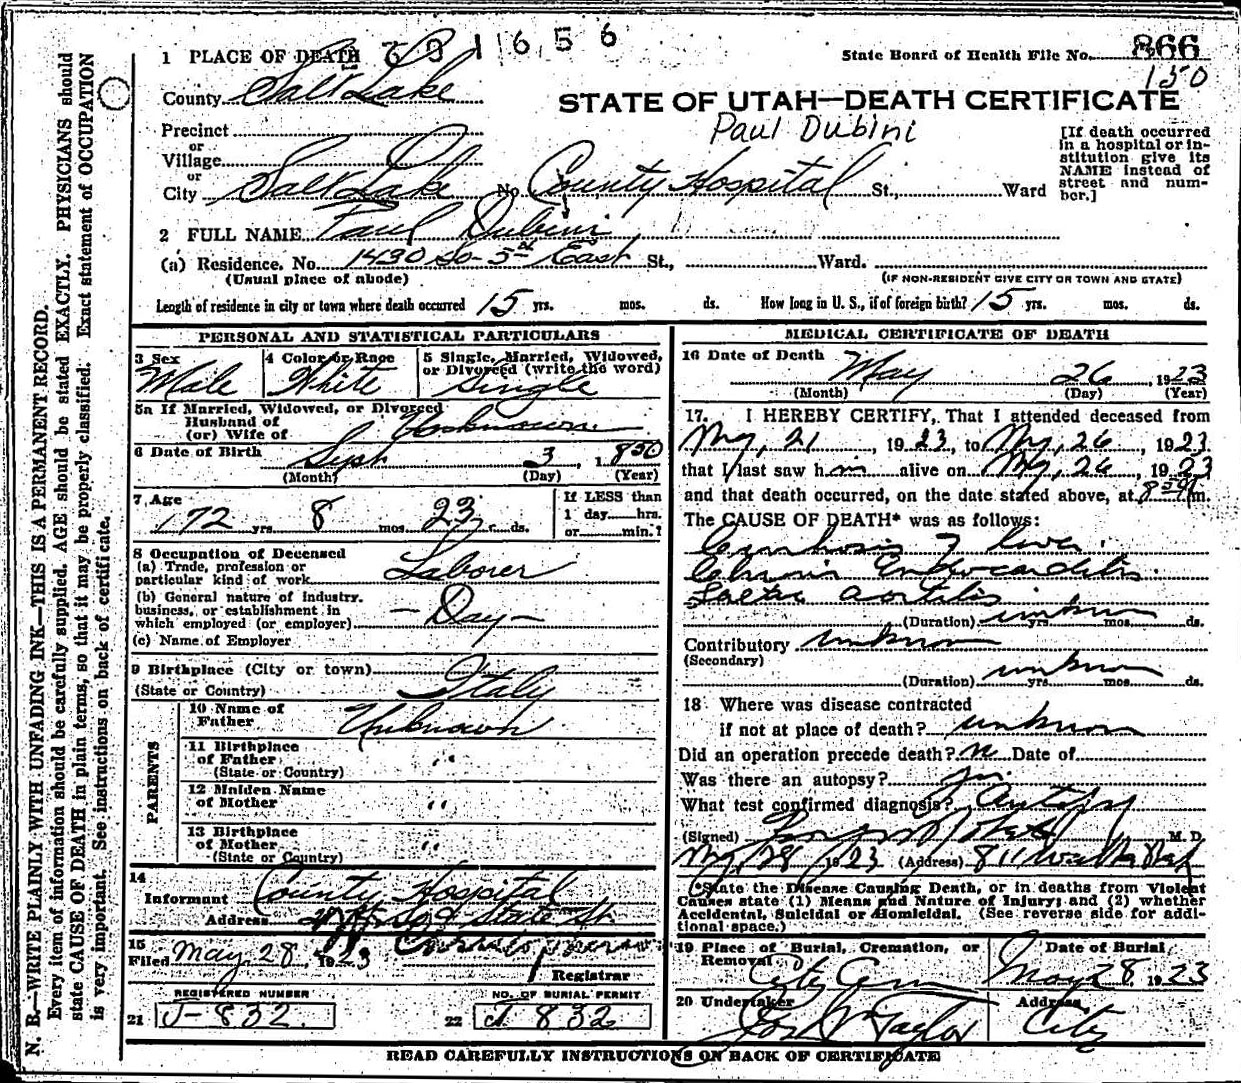 N. B.—WRITE PLAINLY WITH UNFADING INK—THIS IS A PERMANENT RECORD.
Every item of information should be carefully supplied. AGE should be stated EXACTLY. PHYSICIANS should
state CAUSE OF DEATH in plain terms, so that it may be properly classified. Exact statement of OCCUPATION
is very important. See instructions on back of certificate.
1 PLACE OF DEATH
1656
State Board of Health File No. 866
150
County Salt Lake
STATE OF UTAH—DEATH CERTIFICATE
Precinct
Paul Dubini
[If death occurred
in a hospital or in-
stitution give its
NAME instead of
street and num-
ber.]
or
Village
or
City Salt Lake No. County Hospital St., Ward
2 FULL NAME Paul Dubini
(a) Residence. No. 1430 So. 5th East St., Ward.
(Usual place of abode) (IF NON-RESIDENT GIVE CITY OR TOWN AND STATE)
Length of residence in city or town where death occurred 15 yrs. mos. ds. How long in U. S., if of foreign birth? 15 yrs. mos. ds.
PERSONAL AND STATISTICAL PARTICULARS
3 Sex 4 Color or Race 5 Single, Married, Widowed,
or Divorced (write the word)
Male White Single
5a If Married, Widowed, or Divorced
Husband of
(or) Wife of Unknown
6 Date of Birth Sept 3, 1850
(Month) (Day) (Year)
7 Age If LESS than
72 yrs. 8 mos. 23 ds. 1 day hrs.
or min.?
8 Occupation of Deceased
(a) Trade, profession or
particular kind of work Laborer
(b) General nature of industry,
business, or establishment in
which employed (or employer) — Day —
(c) Name of Employer
9 Birthplace (City or town)
(State or Country) Italy
PARENTS
10 Name of
Father Unknown
11 Birthplace
of Father "
(State or Country)
12 Maiden Name
of Mother "
13 Birthplace
of Mother "
(State or Country)
14
Informant County Hospital
Address State St.
15
Filed May 28, 1923
Registrar
REGISTERED NUMBER NO. OF BURIAL PERMIT
21 J-832 22 J 832
MEDICAL CERTIFICATE OF DEATH
16 Date of Death May 26, 1923
(Month) (Day) (Year)
17. I HEREBY CERTIFY, That I attended deceased from
May, 21, 1923, to May, 26, 1923
that I last saw him alive on May, 26, 1923
and that death occurred, on the date stated above, at m.
The CAUSE OF DEATH* was as follows:
Cirrhosis of liver.
Chronic Endocarditis
aortitis
(Duration) unknown yrs. mos. ds.
Contributory unknown
(Secondary)
(Duration) unknown yrs. mos. ds.
18 Where was disease contracted
if not at place of death? unknown
Did an operation precede death? no Date of
Was there an autopsy? yes.
What test confirmed diagnosis? Autopsy
(Signed) M. D.
May, 28, 1923 (Address) 811 Walker Bk
(*State the Disease Causing Death, or in deaths from Violent
Causes state (1) Means and Nature of Injury; and (2) whether
Accidental, Suicidal or Homicidal. (See reverse side for addi-
tional space.)
19 Place of Burial, Cremation, or
Removal City Cem
Date of Burial
May 28, 1923
20 Undertaker Address
Taylor City
READ CAREFULLY INSTRUCTIONS ON BACK OF CERTIFICATE